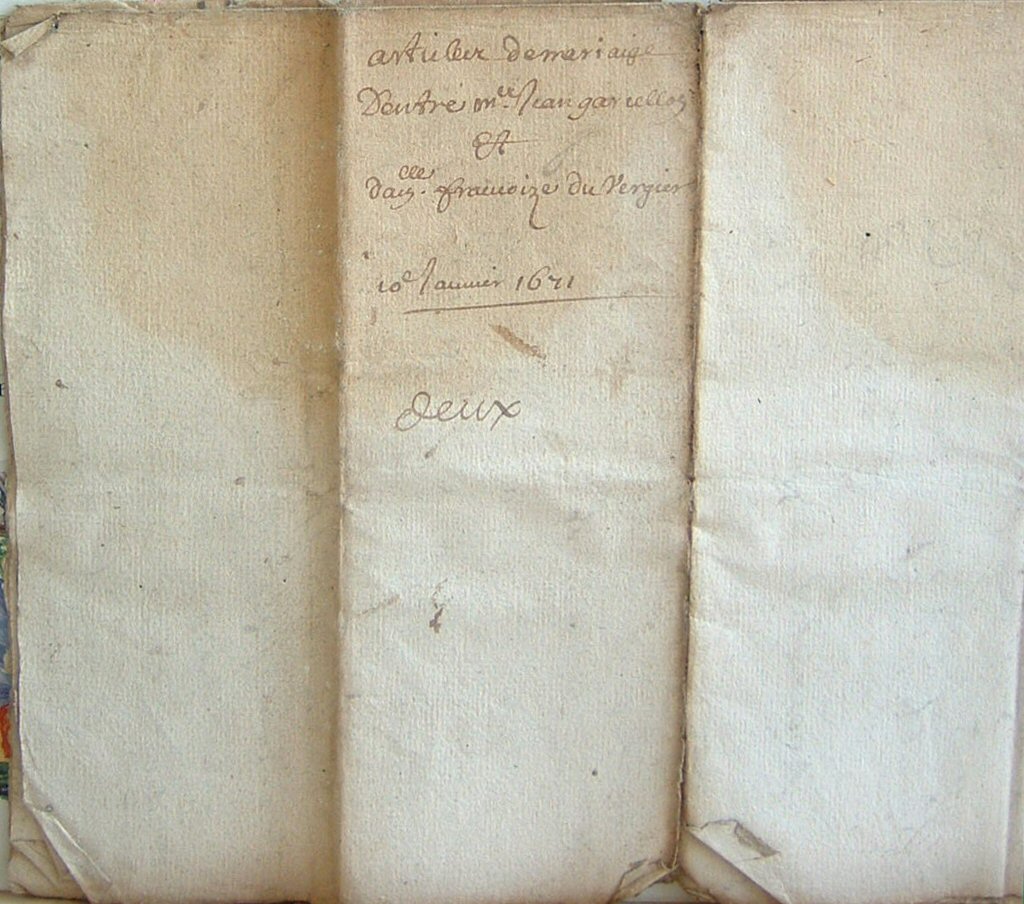 articles de mariaige
D'entre mre Jean garcellon
Et
dalle. francoize du Vergier
10e Januier 1671
deux